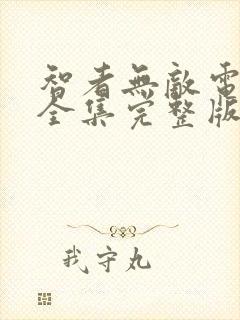 智者無敵電
全集完整版
我守丸